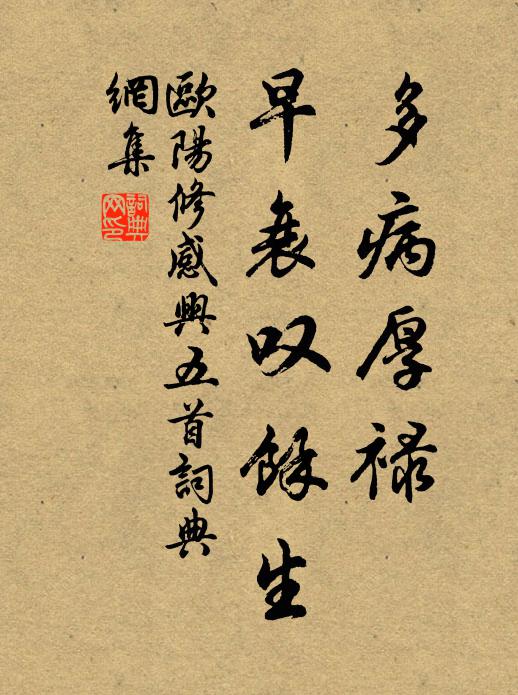 多病厚禄
早衰叹餘生
歐陽修感興五首詞典
網集
詞典
网印